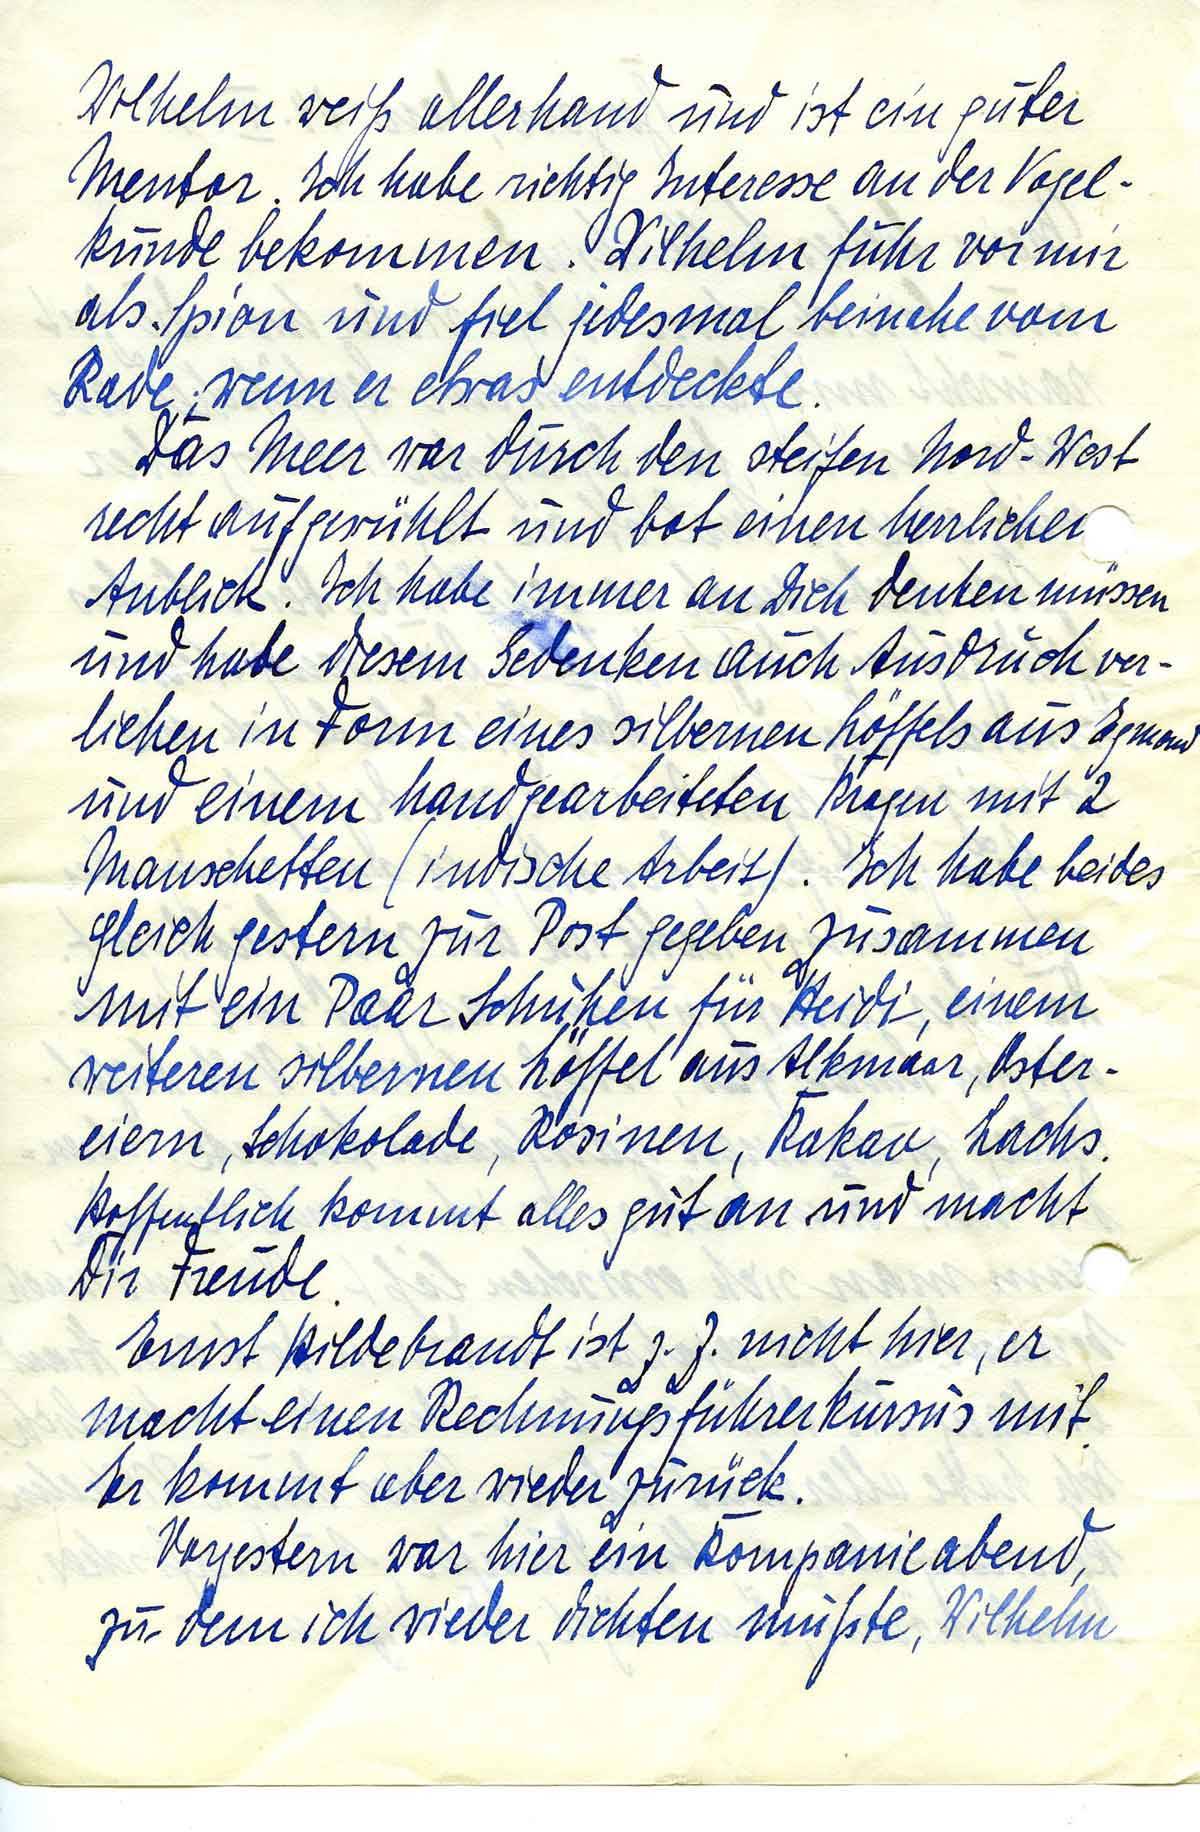 Wilhelm weiß allerhand und ist ein guter
Mentor. Ich habe richtig Interesse an der Vogel-
kunde bekommen. Wilhelm fuhr vor mir
als Spion und fiel jedesmal beinahe vom
Rade, wenn er etwas entdeckte.
Das Meer war durch den steifen Nord-West
recht aufgewühlt und bot einen herrlichen
Anblick. Ich habe immer an Dich denken müssen
und habe diesem Gedenken auch Ausdruck ver-
liehen in Form eines silbernen Löffels aus Egmond
und einem handgearbeiteten Kragen mit 2
Manschetten (indische Arbeit). Ich habe beides
gleich gestern zur Post gegeben zusammen
mit ein Paar Schuhen für Heidi, einem
weiteren silbernen Löffel aus Alkmaar, Oster-
eiern, Schokolade, Rosinen, Kakao, Lachs.
Hoffentlich kommt alles gut an und macht
Dir Freude.
Ernst Hildebrandt ist z. Z. nicht hier, er
macht einen Rechnungsführerkursus mit.
Er kommt aber wieder zurück.
Vorgestern war hier ein Kompanieabend,
zu dem ich wieder dichten mußte, Wilhelm